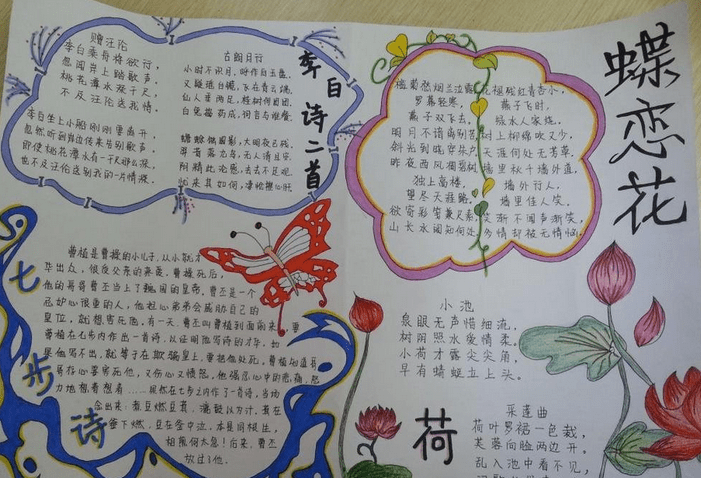 赠汪伦
李白乘舟将欲行,
忽闻岸上踏歌声。
桃花潭水深千尺,
不及汪伦送我情。
李白坐上小船刚刚要离开,
忽然听到岸边传来告别歌声。
即使桃花潭水有一千尺那么深,
也不及汪伦送别我的一片情深。
古朗月行
小时不识月,呼作白玉盘。
又疑瑶台镜,飞在青云端。
仙人垂两足,桂树何团团。
白兔捣药成,问言与谁餐。
蟾蜍蚀圆影,大明夜已残。
羿昔落九乌,天人清且安。
阴精此沦惑,去去不足观。
忧来其如何,凄怆摧心肝
李白诗二首
槛菊愁烟兰泣露
罗幕轻寒,
燕子双飞去。
明月不谙离别苦
斜光到晓穿朱户
昨夜西风凋碧树
独上高楼,
望尽天涯路。
欲寄彩笺兼尺素
山长水阔知何处
花褪残红青杏小,
燕子飞时,
绿水人家绕。
枝上柳绵吹又少,
天涯何处无芳草.
墙里秋千墙外道,
墙外行人,
墙里佳人笑。
笑渐不闻声渐笑,
多情却被无情恼
蝶恋花
七步诗
曹植是曹操的小儿子,从小就才
华出众,很受父亲的亲爱。曹操死后,
他的哥哥曹丕当上了魏国的皇帝。曹丕是一个
忌妒心很重的人,他担心弟弟会威胁自己的
皇位,就想害死他。有一天,曹丕叫曹植到面前来,要
曹植在七步内作出一首诗,以证明他写诗的才华。如
果他写不出,就等于在欺骗皇上,要把他处死。曹植知道哥
哥存心要害死他,又伤心又愤怒。他强忍心中的悲痛,努
力地想着想着……果然在七步之内作了一首诗,当场
念出来:煮豆燃豆萁,漉豉以为汁,萁在
釜下燃,豆在釜中泣,本是同根生,
相煎何太急!后来,曹丕
放过了他。
小池
泉眼无声惜细流,
树阴照水爱情柔。
小荷才露尖尖角,
早有蜻蜓立上头。
荷
采莲曲
荷叶罗裙一色裁,
芙蓉向脸两边开。
乱入池中看不见,